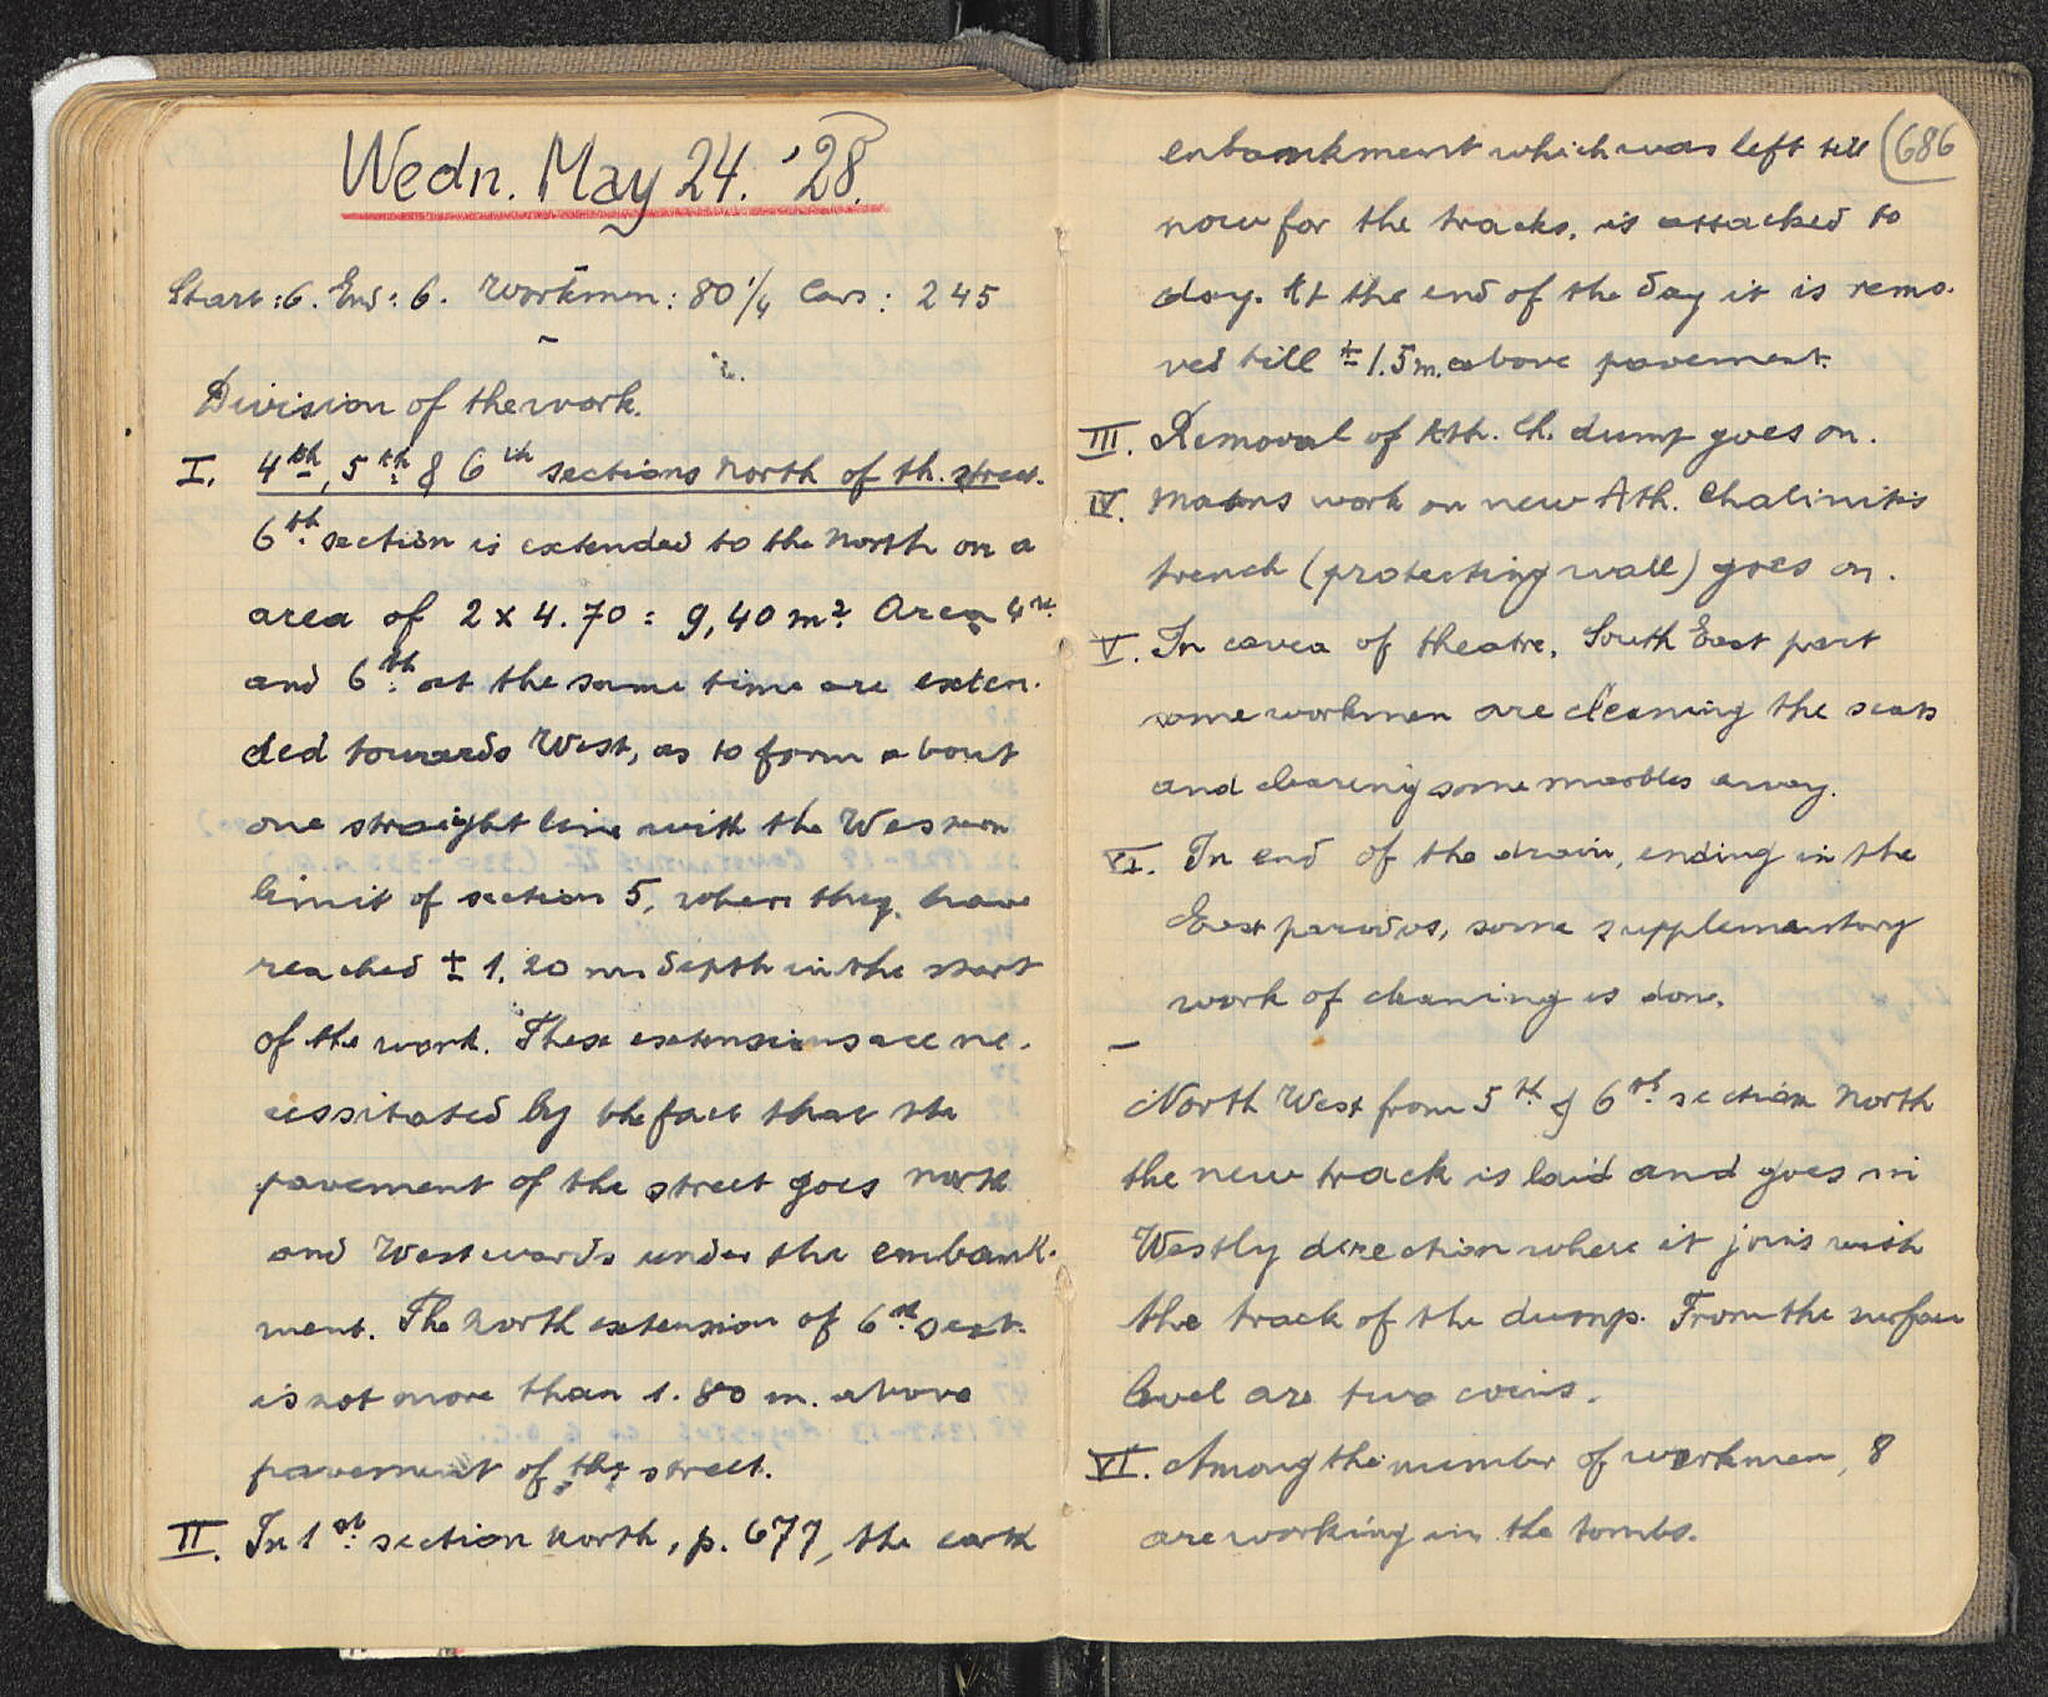 Wedn. May 24. '28.
Start: 6. End: 6. Workmen: 80 1/4 Cars: 245
Division of the work.
I. 4th, 5th & 6th sections North of th. street.
6th section is extended to the North on a
area of 2 x 4.70 = 9,40 m² Area 4th
and 6th at the same time are exten-
ded towards West, as to form about
one straight line with the Western
limit of section 5, where they have
reached ± 1.20 m depth in the start
of the work. These extensions are ne-
cessitated by the fact that the
pavement of the street goes north
and Westwards under the embank-
ment. The North extension of 6th sect.
is not more than 1.80 m. above
pavement of the street.
II. In 1st section North, p. 677, the earth
(686
enbankment which was left till
now for the tracks, is attacked to
day. At the end of the day it is remo-
ved till ± 1.5 m. above pavement.
III. Removal of Ath. Ch. dump goes on.
IV. Masons work on new Ath. Chaliniotis
trench (protecting wall) goes on.
V. In cavea of theatre, South East part
some workmen are cleaning the seats
and clearing some marbles away.
VI. In end of the drain, ending in the
East parodos, some supplementary
work of cleaning is done.
—
North West from 5th & 6th section North
the new track is laid and goes in
Westly direction where it joins with
the track of the dump. From the surface
level are two coins.
VI. Among the number of workmen, 8
are working in the tombs.